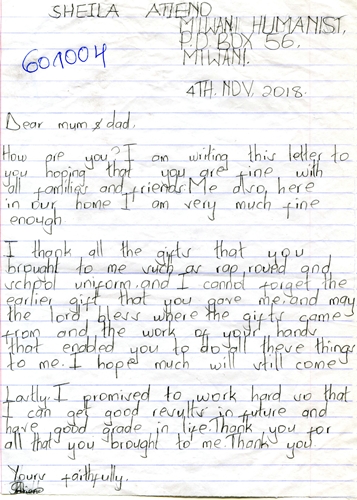 SHEILA ATIENO
MIWANI HUMANIST,
P.O BOX 56,
MIWANI.
601004
4TH. NOV, 2018.
Dear mum & dad,
How are you? I am writing this letter to
you hoping that you are fine with
all families and friends. Me also, here
in our home I am very much fine
enough.
I thank all the gifts that you
brought to me such as rap, roved and
school uniform, and I cannot forget the
earlier gift that you gave me, and may
the lord bless where the gifts came
from and the work of your hands
that enabled you to do all these things
to me. I hope much will still come
Lastly. I promised to work hard so that
I can get good results in future and
have good grade in life. Thank you for
all that you brought to me. Thank you
Yours faithfully.